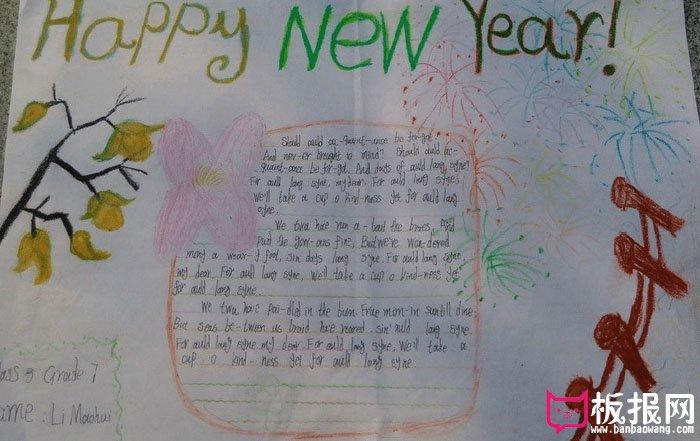 Happy NEW Year!
Should auld ac-quaint-ance be for-got
And nev-er brought to mind? Should auld ac-
quaint-ance be for-got, And days of auld lang syne?
For auld lang syne, my dear. For auld lang syne,
We'll take a cup o kind-ness yet for auld lang
syne.
We twa have run a-bout the braes, And
pud the gow-ans fine, But we've wan-dered
many a wear-y foot, sin days lang syne. For auld lang syne,
my dear. For auld lang syne, We'll take a cup o kind-ness yet
for auld lang syne.
We twa have pai-dled in the burn From morn-in sun till dine.
But seas be-tween us braid have roared sin' auld lang syne.
For auld lang syne my dear. For auld, lang syne, We'll take a
cup o kind-ness yet for auld lang syne.
lass 3 Grade 7
ame: Li Maohui
板报网
www.banbaowang.com